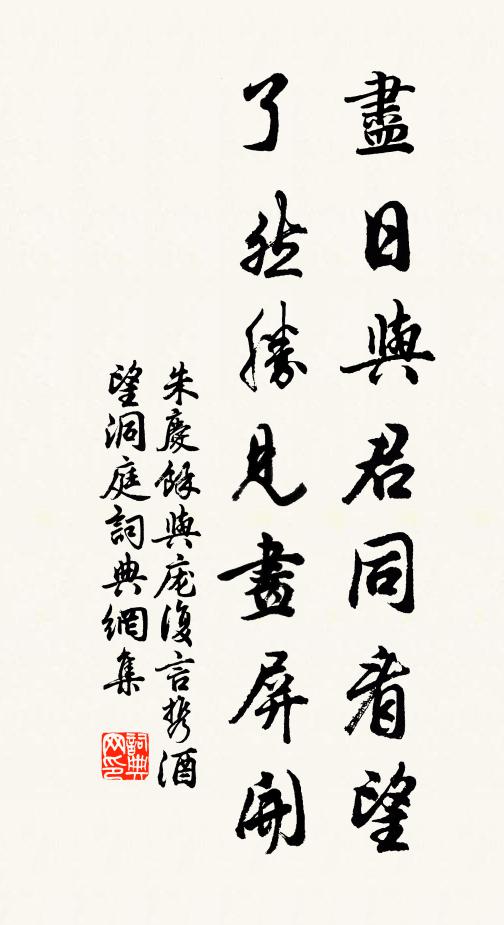 盡日與君同看望
了然勝見畫屏開
朱慶餘與庞復言携酒
望洞庭詞典網集
詞典网印